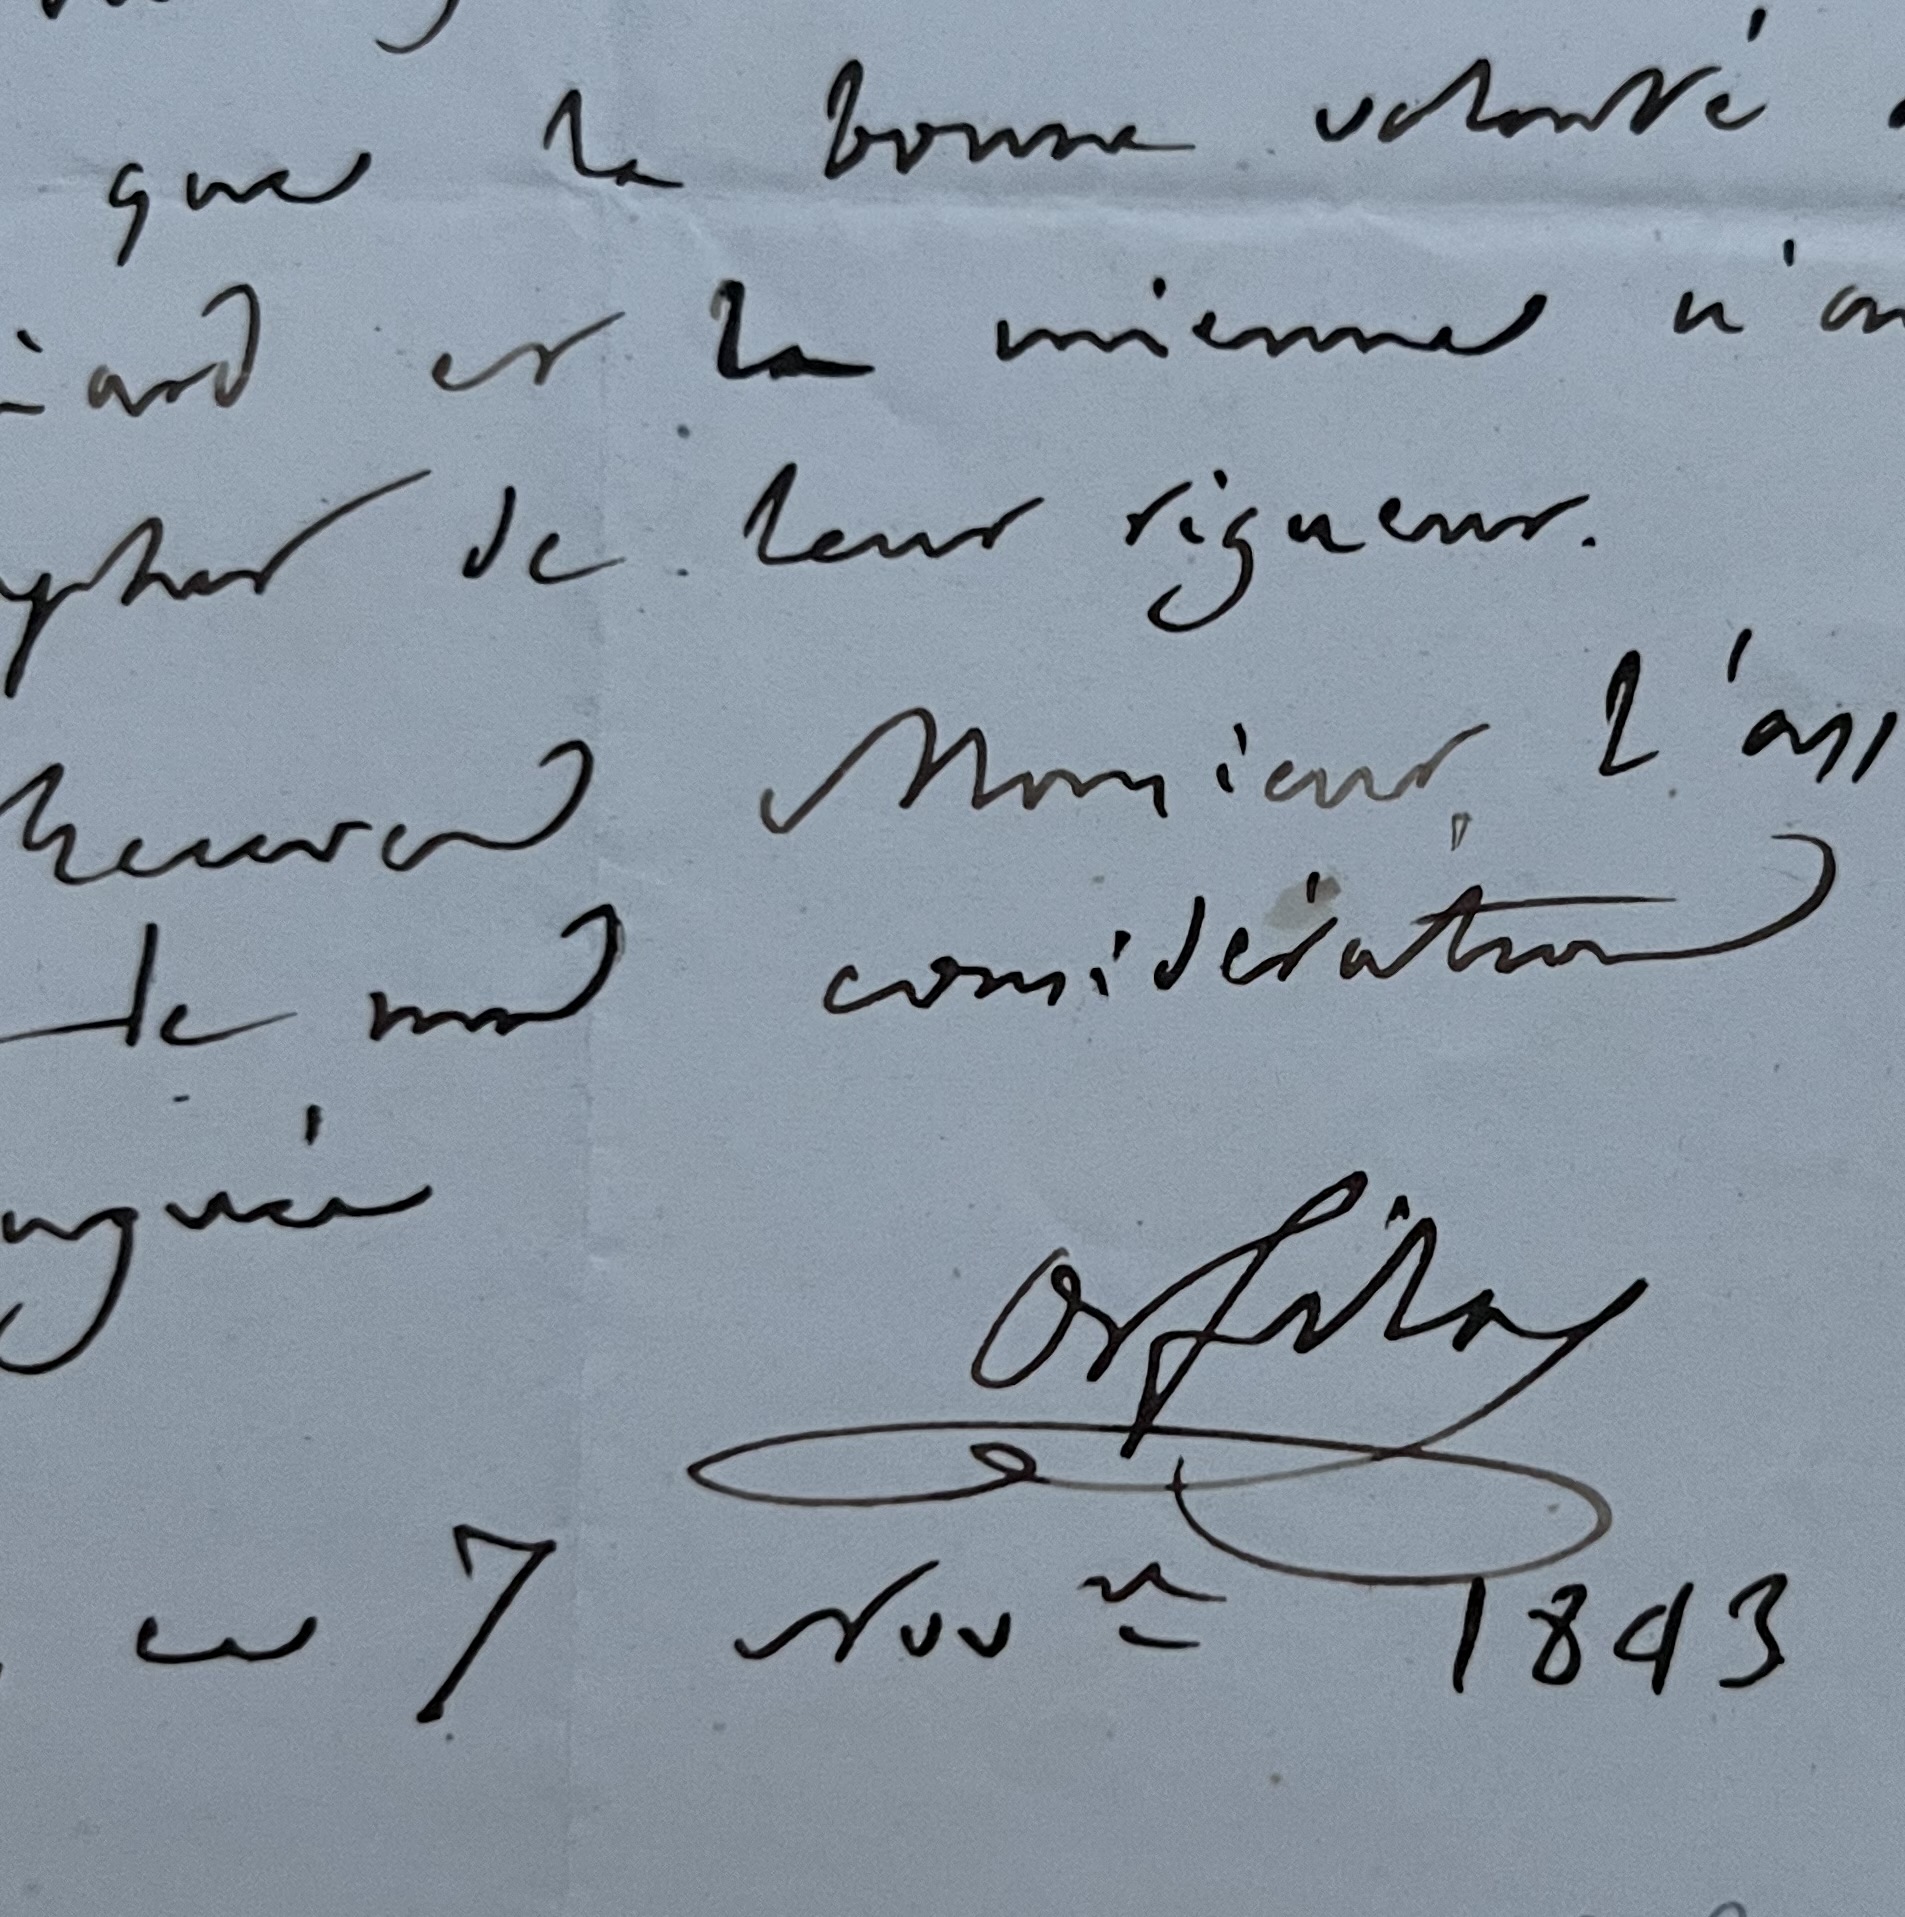 que la bonne volonté
iard et la mienne n'on
pher de leur rigueur.
Recevez Monsieur, l'ass
de ma considération
inguée
Orfila
ce 7 Nov^re 1843